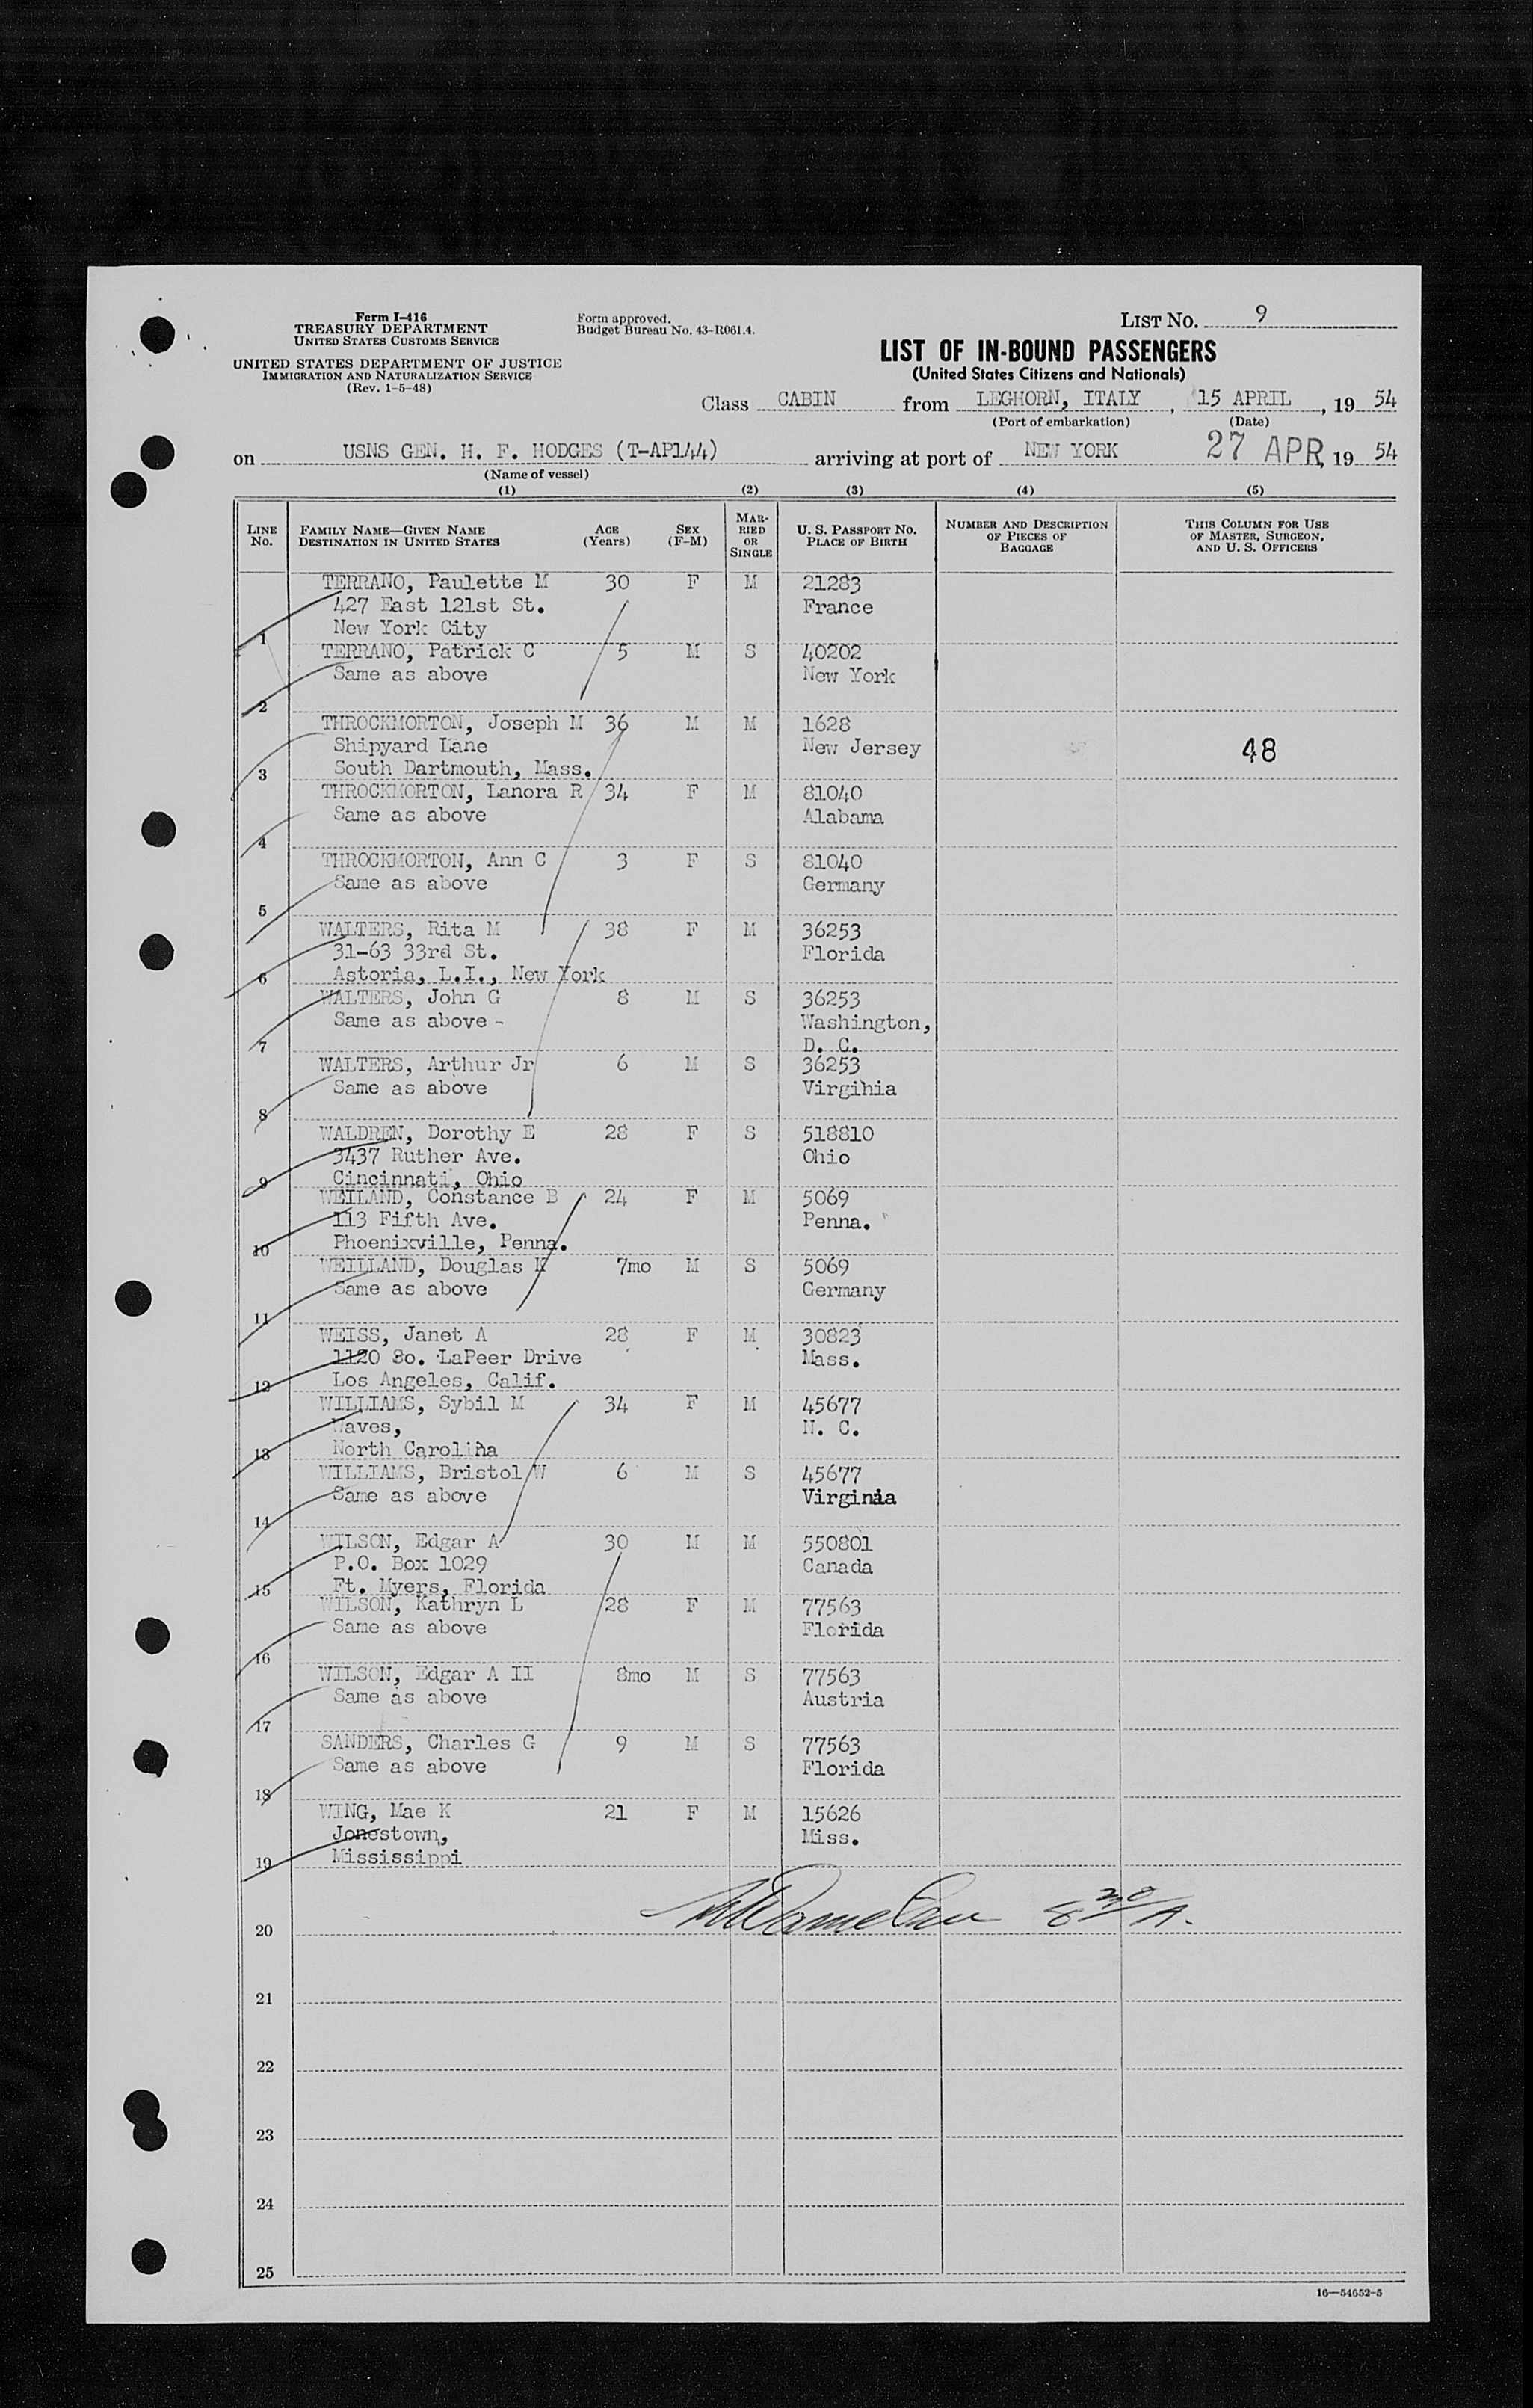 Form I-416
TREASURY DEPARTMENT
UNITED STATES CUSTOMS SERVICE
UNITED STATES DEPARTMENT OF JUSTICE
IMMIGRATION AND NATURALIZATION SERVICE
(Rev. 1-5-48)
Form approved.
Budget Bureau No. 43-R061.4.
LIST NO. 9
LIST OF IN-BOUND PASSENGERS
(United States Citizens and Nationals)
Class CABIN from LEGHORN, ITALY, 15 APRIL, 19 54
(Port of embarkation) (Date)
on USNS GEN. H. F. HODGES (T-AP144) arriving at port of NEW YORK 27 APR, 19 54
(Name of vessel)
(1) (2) (3) (4) (5)
LINE NO. FAMILY NAME—GIVEN NAME DESTINATION IN UNITED STATES AGE (Years) SEX (F-M) MARRIED OR SINGLE U. S. PASSPORT NO. PLACE OF BIRTH NUMBER AND DESCRIPTION OF PIECES OF BAGGAGE THIS COLUMN FOR USE OF MASTER, SURGEON, AND U. S. OFFICERS
TERRANO, Paulette M 30 F M 21283
427 East 121st St. France
1 New York City
TERRANO, Patrick C 5 M S 40202
Same as above New York
2
THROCKMORTON, Joseph M 36 M M 1628
Shipyard Lane New Jersey 48
3 South Dartmouth, Mass.
THROCKMORTON, Lanora R 34 F M 81040
Same as above Alabama
4
THROCKMORTON, Ann C 3 F S 81040
Same as above Germany
5
WALTERS, Rita M 38 F M 36253
31-63 33rd St. Florida
6 Astoria, L.I., New York
WALTERS, John G 8 M S 36253
Same as above - Washington,
7 D. C.
WALTERS, Arthur Jr 6 M S 36253
Same as above Virgihia
8
WALDREN, Dorothy E 28 F S 518810
3437 Ruther Ave. Ohio
9 Cincinnati, Ohio
WEILAND, Constance B 24 F M 5069
113 Fifth Ave. Penna.
10 Phoenixville, Penna.
WEILLAND, Douglas K 7mo M S 5069
Same as above Germany
11
WEISS, Janet A 28 F M 30823
1120 So. LaPeer Drive Mass.
12 Los Angeles, Calif.
WILLIAMS, Sybil M 34 F M 45677
Waves, N. C.
13 North Caroliha
WILLIAMS, Bristol W 6 M S 45677
Same as above Virginia
14
WILSON, Edgar A 30 M M 550801
P.O. Box 1029 Canada
15 Ft. Myers, Florida
WILSON, Kathryn L 28 F M 77563
Same as above Florida
16
WILSON, Edgar A II 8mo M S 77563
Same as above Austria
17
SANDERS, Charles G 9 M S 77563
Same as above Florida
18
WING, Mae K 21 F M 15626
Jonestown, Miss.
19 Mississippi
8 30/A.
20
21
22
23
24
25
16—54652-5